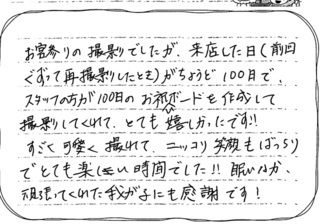 お宮参りの撮影でしたが、来店した日(前回
ぐずって再撮影したとき)がちょうど100日で、
スタッフの方が100日のお祝ボードを作成して
撮影してくれて、とても嬉しかったです!!
すごく可愛く撮れて、ニッコリ笑顔もばっちり
でとても楽しい時間でした!! 眠いなか、
頑張ってくれた我が子にも感謝です!